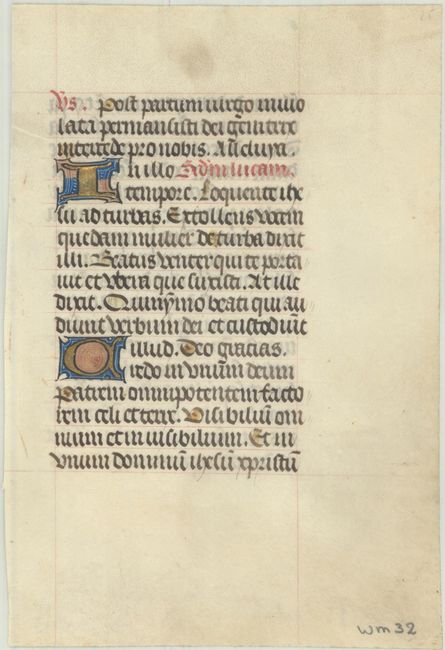 Vs. Post partum uirgo inuio
lata permansisti dei genitrix
intercede pro nobis. Alleluya.
In illo Scdm lucam.
tempore. Loquente ihe
su ad turbas. Extollens vocem
quedam mulier de turba dixit
illi. Beatus venter qui te porta
uit et vbera que suxisti. At ille
dixit. Quinymo beati qui au
diunt verbum dei et custodiut
illud. Deo gracias.
Credo in vnum deum
Patrem omnipotentem facto
rem celi et terre. Visibiliu om
nium et in uisibilium. Et in
vnum dominu ihesu xpristu
wm 32